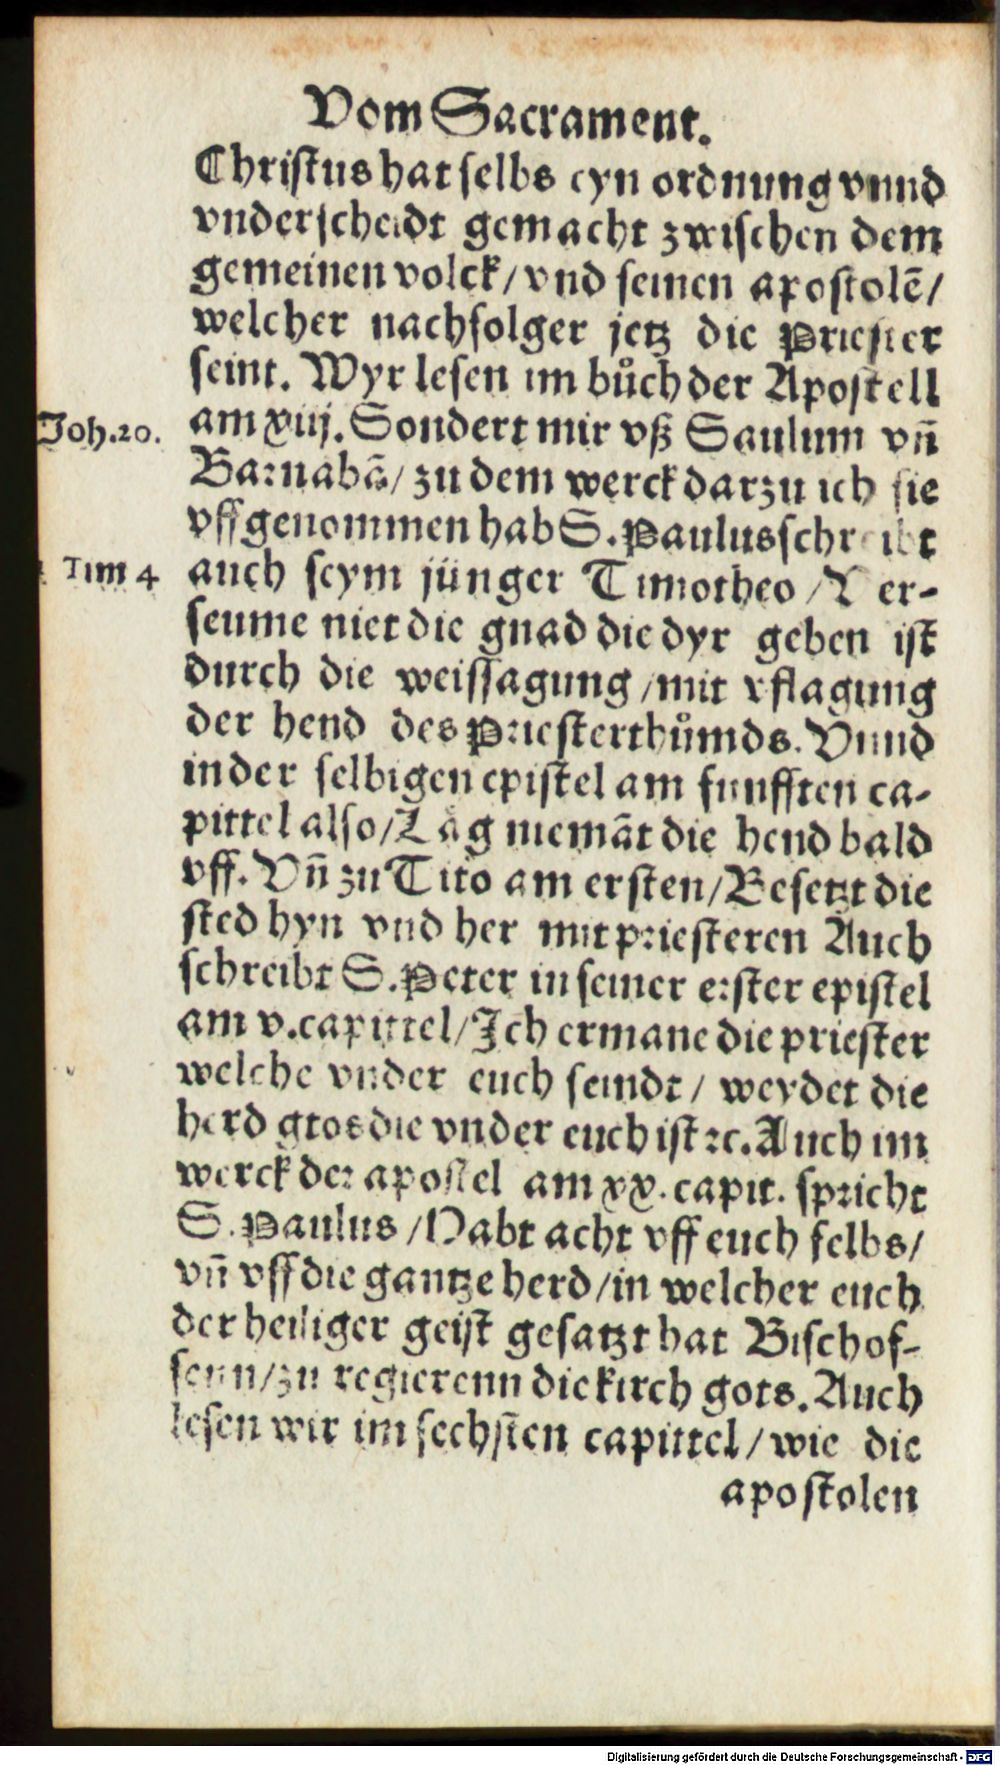 Vom Sacrament.
Christus hat selbs eyn ordnung vnnd
vnderscheidt gemacht zwischen dem
gemeinen volck/ vnd seinen apostolē/
welcher nachfolger jetz die Priester
seint. Wyr lesen im bůch der Apostell
Joh.20.
am xiij. Sondert mir vß Saulum vñ
Barnabã/ zu dem werck darzu ich sie
vffgenommen hab S. Paulus schreibt
Tim 4
auch seym jünger Timotheo / Ver-
seume niet die gnad die dyr geben ist
durch die weissagung /mit vflagung
der hend des Priesterthůmds. Vnnd
in der selbigen epistel am funfften ca-
pittel also/ Läg niemãt die hend bald
vff. Vñ zu Tito am ersten/ Besetzt die
sted hyn vnd her mit priesteren Auch
schreibt S. Peter in seiner erster epistel
am v. capittel/ Ich ermane die priester
welche vnder euch seindt / weydet die
herd gtos die vnder euch ist ꝛc. Auch im
werck der apostel am xx. capit. spricht
S. Paulus / Habt acht vff euch selbs/
vñ vff die gantze herd/ in welcher euch
der heiliger geist gesatzt hat Bischof-
senn/ zu regierenn die kirch gots. Auch
lesen wir im sechsten capittel / wie die
apostolen
Digitalisierung gefördert durch die Deutsche Forschungsgemeinschaft - DFG